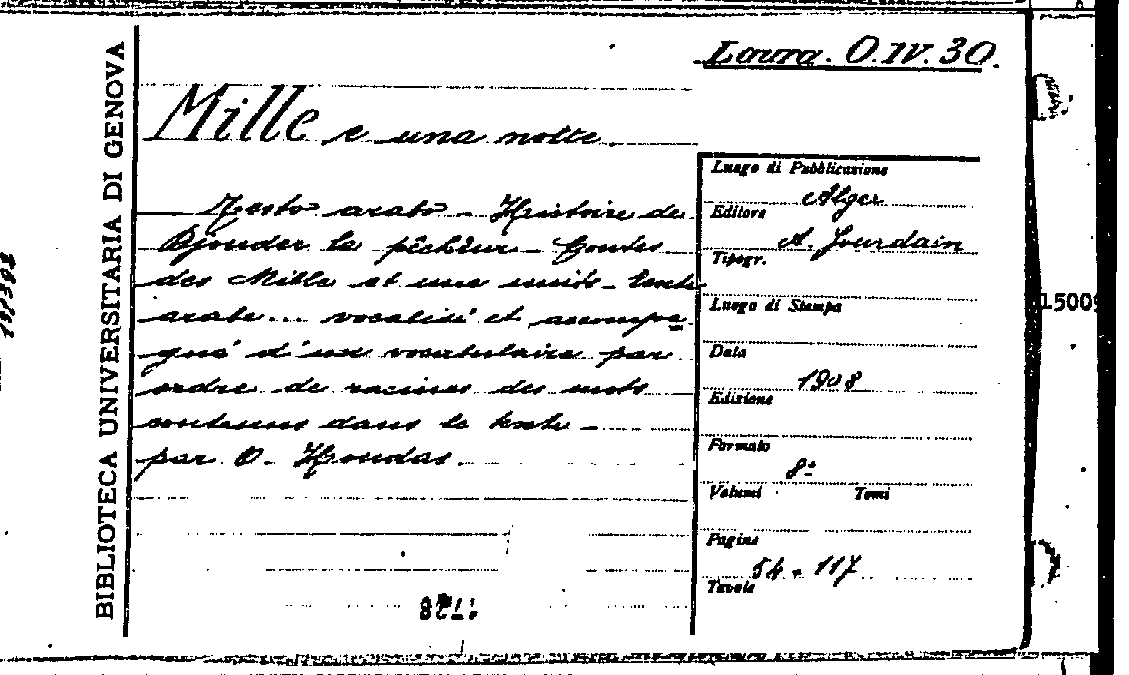 Laura. O.IV.30.
BIBLIOTECA UNIVERSITARIA DI GENOVA
Mille e una notte.
Testo arabo - Histoire de
Djouder le pêcheur - Contes
des Mille et une nuits - texte
arabe... vocalisé et accompa
gné d'un vocabulaire par
ordre de racines des mots
contenus dans le texte -
par O. Houdas.
Luogo di Pubblicazione
Alger
Editore
A. Jourdain
Tipogr.
Luogo di Stampa
Data
1908
Edizione
Formato
8º
Volumi Tomi
Pagine
54 + 117
Tavole
15009